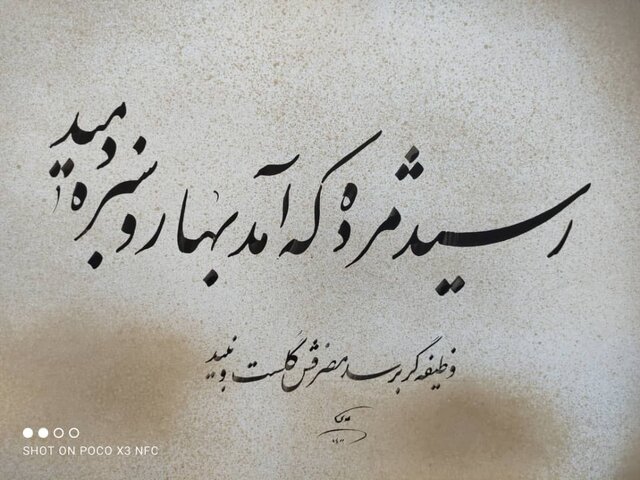 رسید مژده که آمد بهار و سبزه دمید
وظیفه گر برسد مصرفش گلست و نبید
SHOT ON POCO X3 NFC